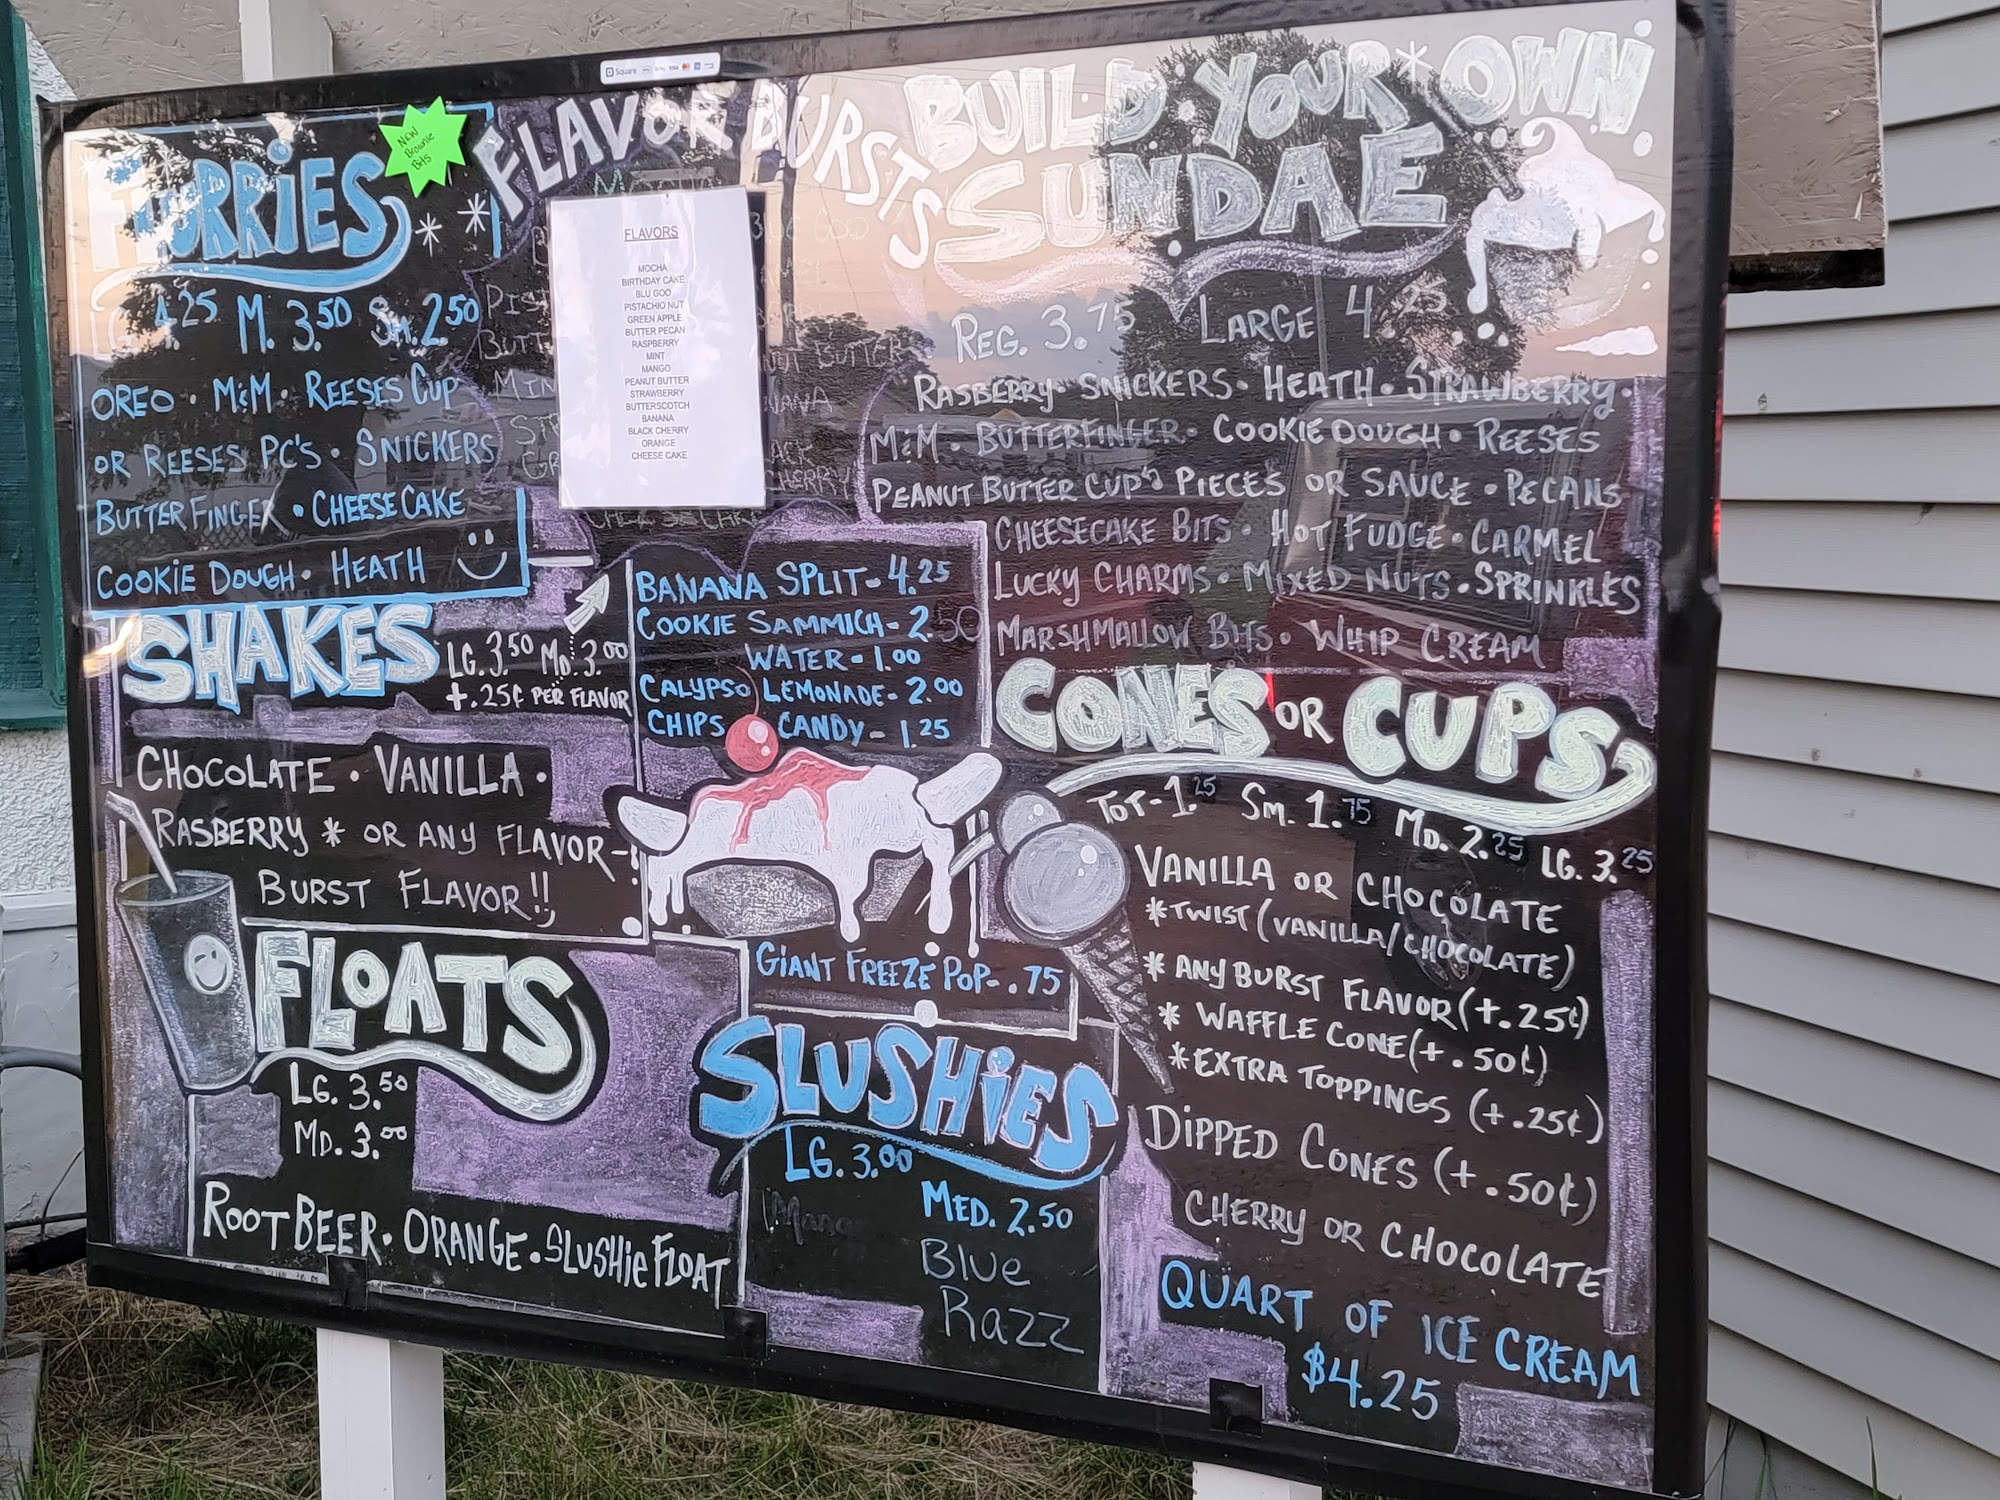 Square
VISA
FLURRIES
NEW
Brownie
Bits
LG. 4.25 M. 3.50 Sm. 2.50
OREO · M&M · REESES CUP
OR REESES PC'S · SNICKERS
BUTTERFINGER · CHEESECAKE
COOKIE DOUGH · HEATH
SHAKES
LG. 3.50 MD. 3.00
+.25¢ PER FLAVOR
CHOCOLATE · VANILLA ·
RASBERRY * OR ANY FLAVOR-
BURST FLAVOR!!
FLOATS
LG. 3.50
MD. 3.00
ROOT BEER · ORANGE · SLUSHIE FLOAT
FLAVOR BURSTS
FLAVORS
MOCHA
BIRTHDAY CAKE
BLU GOO
PISTACHIO NUT
GREEN APPLE
BUTTER PECAN
RASPBERRY
MINT
MANGO
PEANUT BUTTER
STRAWBERRY
BUTTERSCOTCH
BANANA
BLACK CHERRY
ORANGE
CHEESE CAKE
BANANA SPLIT - 4.25
COOKIE SAMMICH - 2.50
WATER - 1.00
CALYPSO LEMONADE - 2.00
CHIPS CANDY - 1.25
GIANT FREEZE POP - .75
SLUSHIES
LG. 3.00
MED. 2.50
Blue
Razz
BUILD YOUR * OWN
SUNDAE
REG. 3.75 LARGE 4.25
RASBERRY · SNICKERS · HEATH · STRAWBERRY ·
M&M · BUTTERFINGER · COOKIE DOUGH · REESES
PEANUT BUTTER CUP'S PIECES OR SAUCE · PECANS
CHEESECAKE BITS · HOT FUDGE · CARMEL
LUCKY CHARMS · MIXED NUTS · SPRINKLES
MARSHMALLOW BITS · WHIP CREAM
CONES OR CUPS
TOT - 1.25 SM. 1.75 MD. 2.25 LG. 3.25
VANILLA OR CHOCOLATE
*TWIST (VANILLA/CHOCOLATE)
* ANY BURST FLAVOR (+.25¢)
* WAFFLE CONE (+.50¢)
*EXTRA TOPPINGS (+.25¢)
DIPPED CONES (+.50¢)
CHERRY OR CHOCOLATE
QUART OF ICE CREAM
$4.25